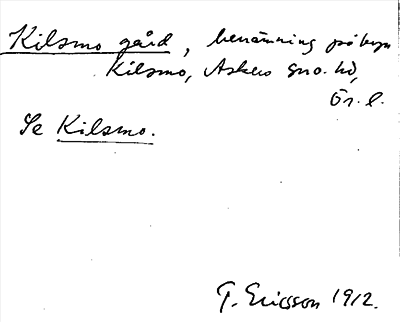 Kilsmo gård, benämning på byn
Kilsmo, Askers sn o. hd,
Ör. l.
Se Kilsmo.
G. Ericsson 1912.